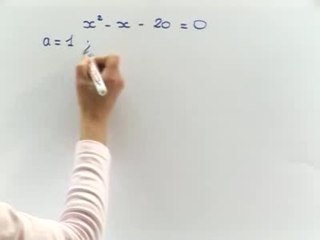 x² - x - 20 = 0
a = 1 ;